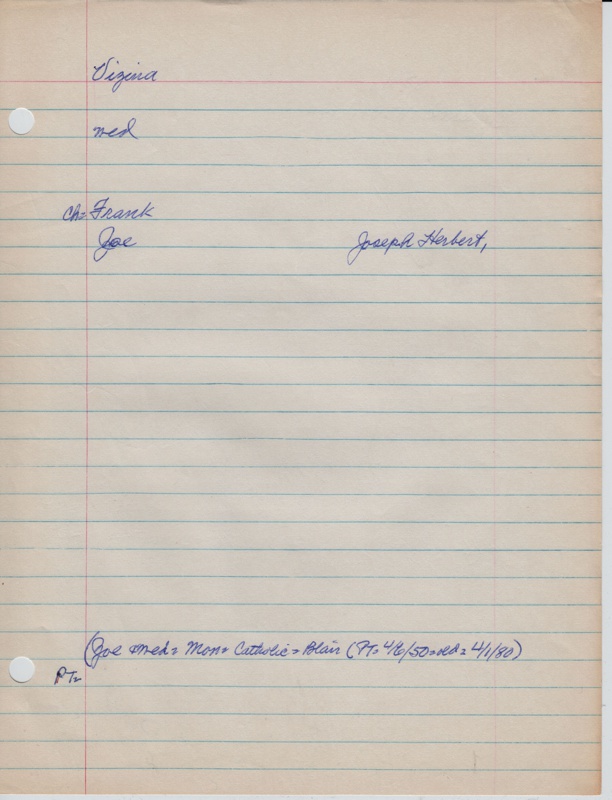 Vizina
med
ch= Frank
Joe Joseph Herbert,
(Joe & med= Mon= Catholic= Blair (PT= 4/6/50= dd= 4/1/80)
PT=